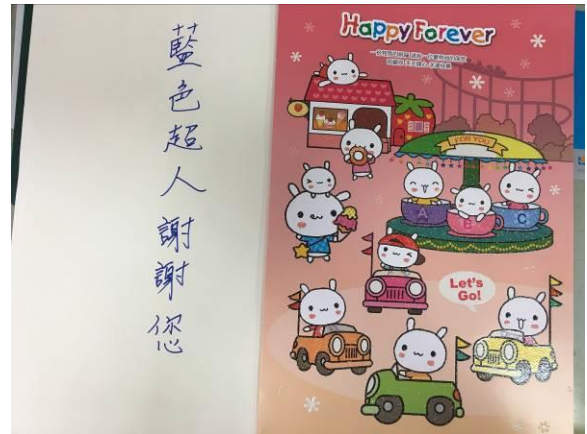 藍色超人謝謝您
Happy Forever
FOR YOU
A
B
C
Let's
Go!